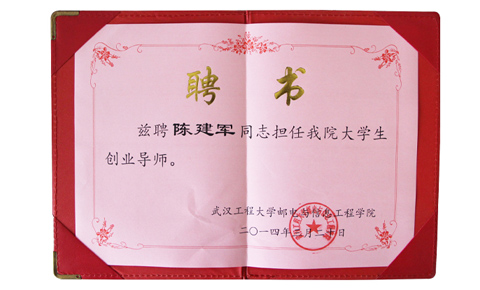 聘 书
兹聘陈建军同志担任我院大学生
创业导师。
武汉工程大学邮电与信息工程学院
二〇一四年三月二十日